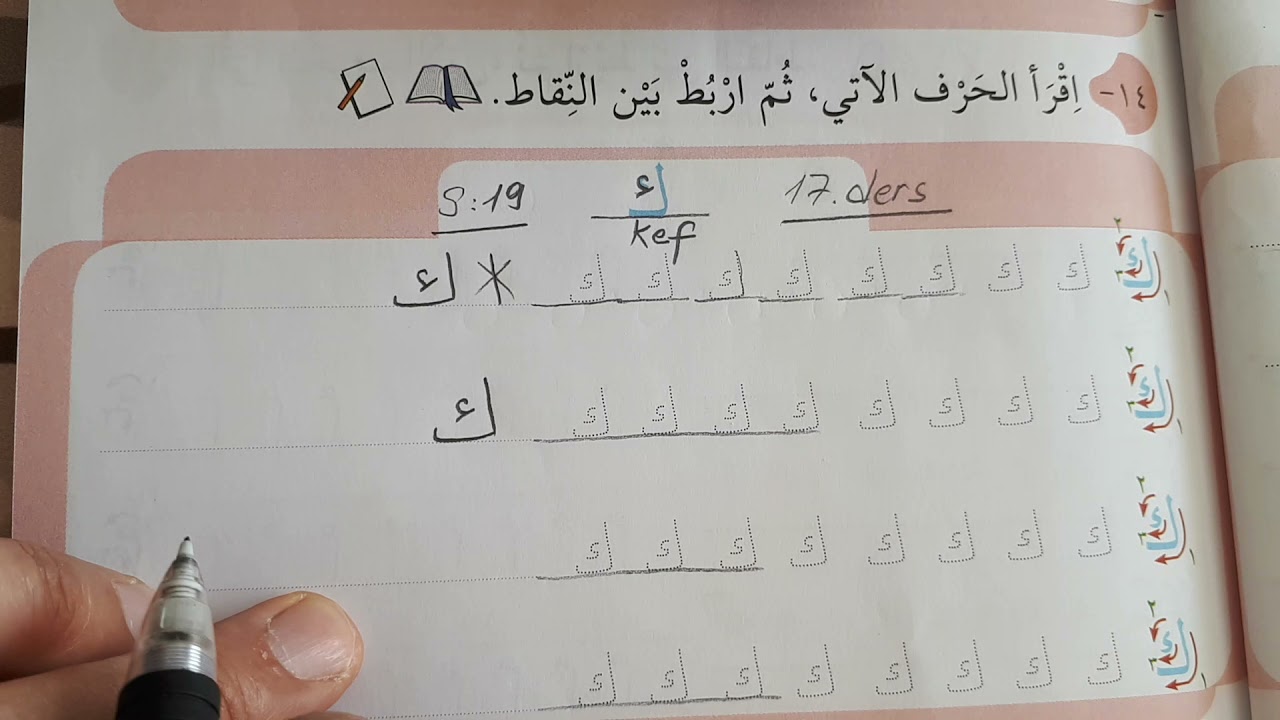 ١٤- اِقْرَأ الحَرْف الآتي، ثُمّ ارْبُطْ بَيْن النِّقاط.
S:19 ك 17.ders
kef
ك ك ك ك ك ك ك ك ك * ك
ك ك ك ك ك ك ك ك ك ك
ك ك ك ك ك ك ك ك ك
ك ك ك ك ك ك ك ك ك